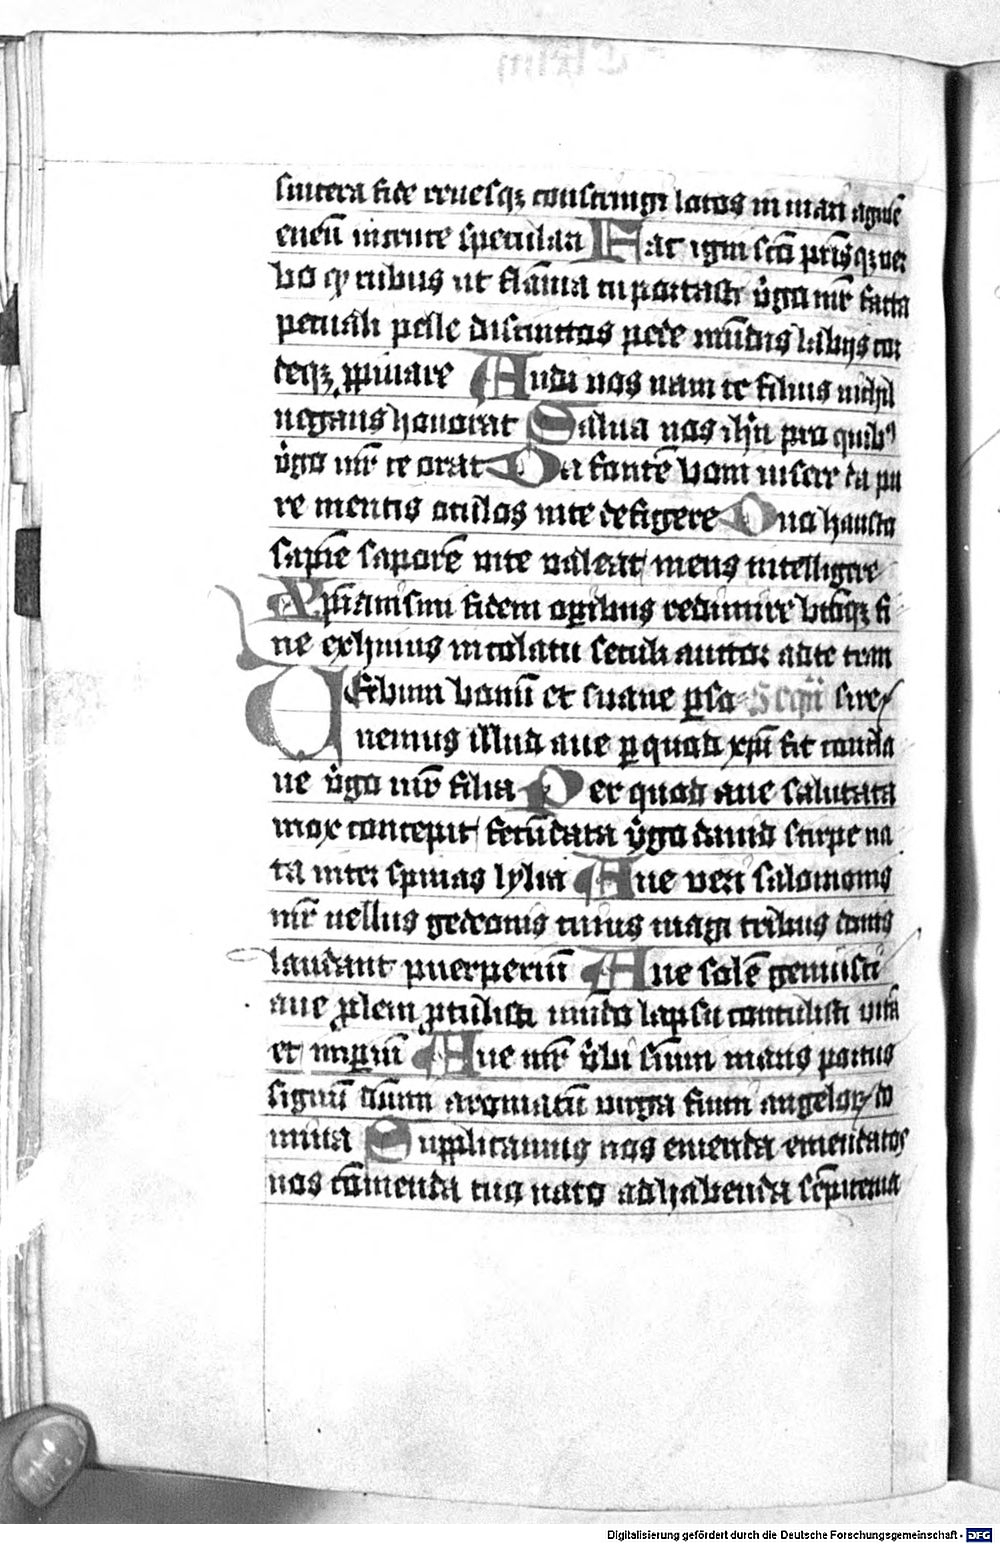 sincera fide renesqz constringi lotos in mari agnū
eneū mente speculari Fac igni sc̄o pr̄isqz ver
bo qꝫ rubus ut flāma tu portasti v̓go mr̄ facta
pecuali pelle discinctos pede mūdis labijs cor
deqz ꝓpinare Audi nos nam te filius nichil
negans honorat Salua nos ihū pro quibꝰ
v̓go mr̄ te orat Da fontē boni visere da pu
re mentis oculos in te defigere Quo hausto
sapiē̄ saporē vite valeat mens intelligere
Xp̄ianismi fidem oꝑibus redimire btōqz fi
ne ex huius incolatu seculi auctor ad te tran
Verbum bonū et suaue ꝑso Seqū sire
nemus illud aue ꝑ quod xp̄i fit concla
ue v̓go mr̄ filia Per quod aue salutata
mox concepit fecūdata v̓go dauid stirpe na
ta inter spinas lylia Aue veri salomonis
mr̄ vellus gedeonis cuius magi tribus donis
laudant puerperiū Aue solē genuisti
aue ꝓlem ꝓtulisti mūdo lapsu contulisti vitā
et imꝑiū Aue mr̄ v̓bi sūmi maris portus
signū dūmi aromatū virga fumi angeloꝝ do
mina Supplicamus nos emenda emendatos
nos cōmenda tuo nato ad habenda sēpiterna
Digitalisierung gefördert durch die Deutsche Forschungsgemeinschaft - DFG